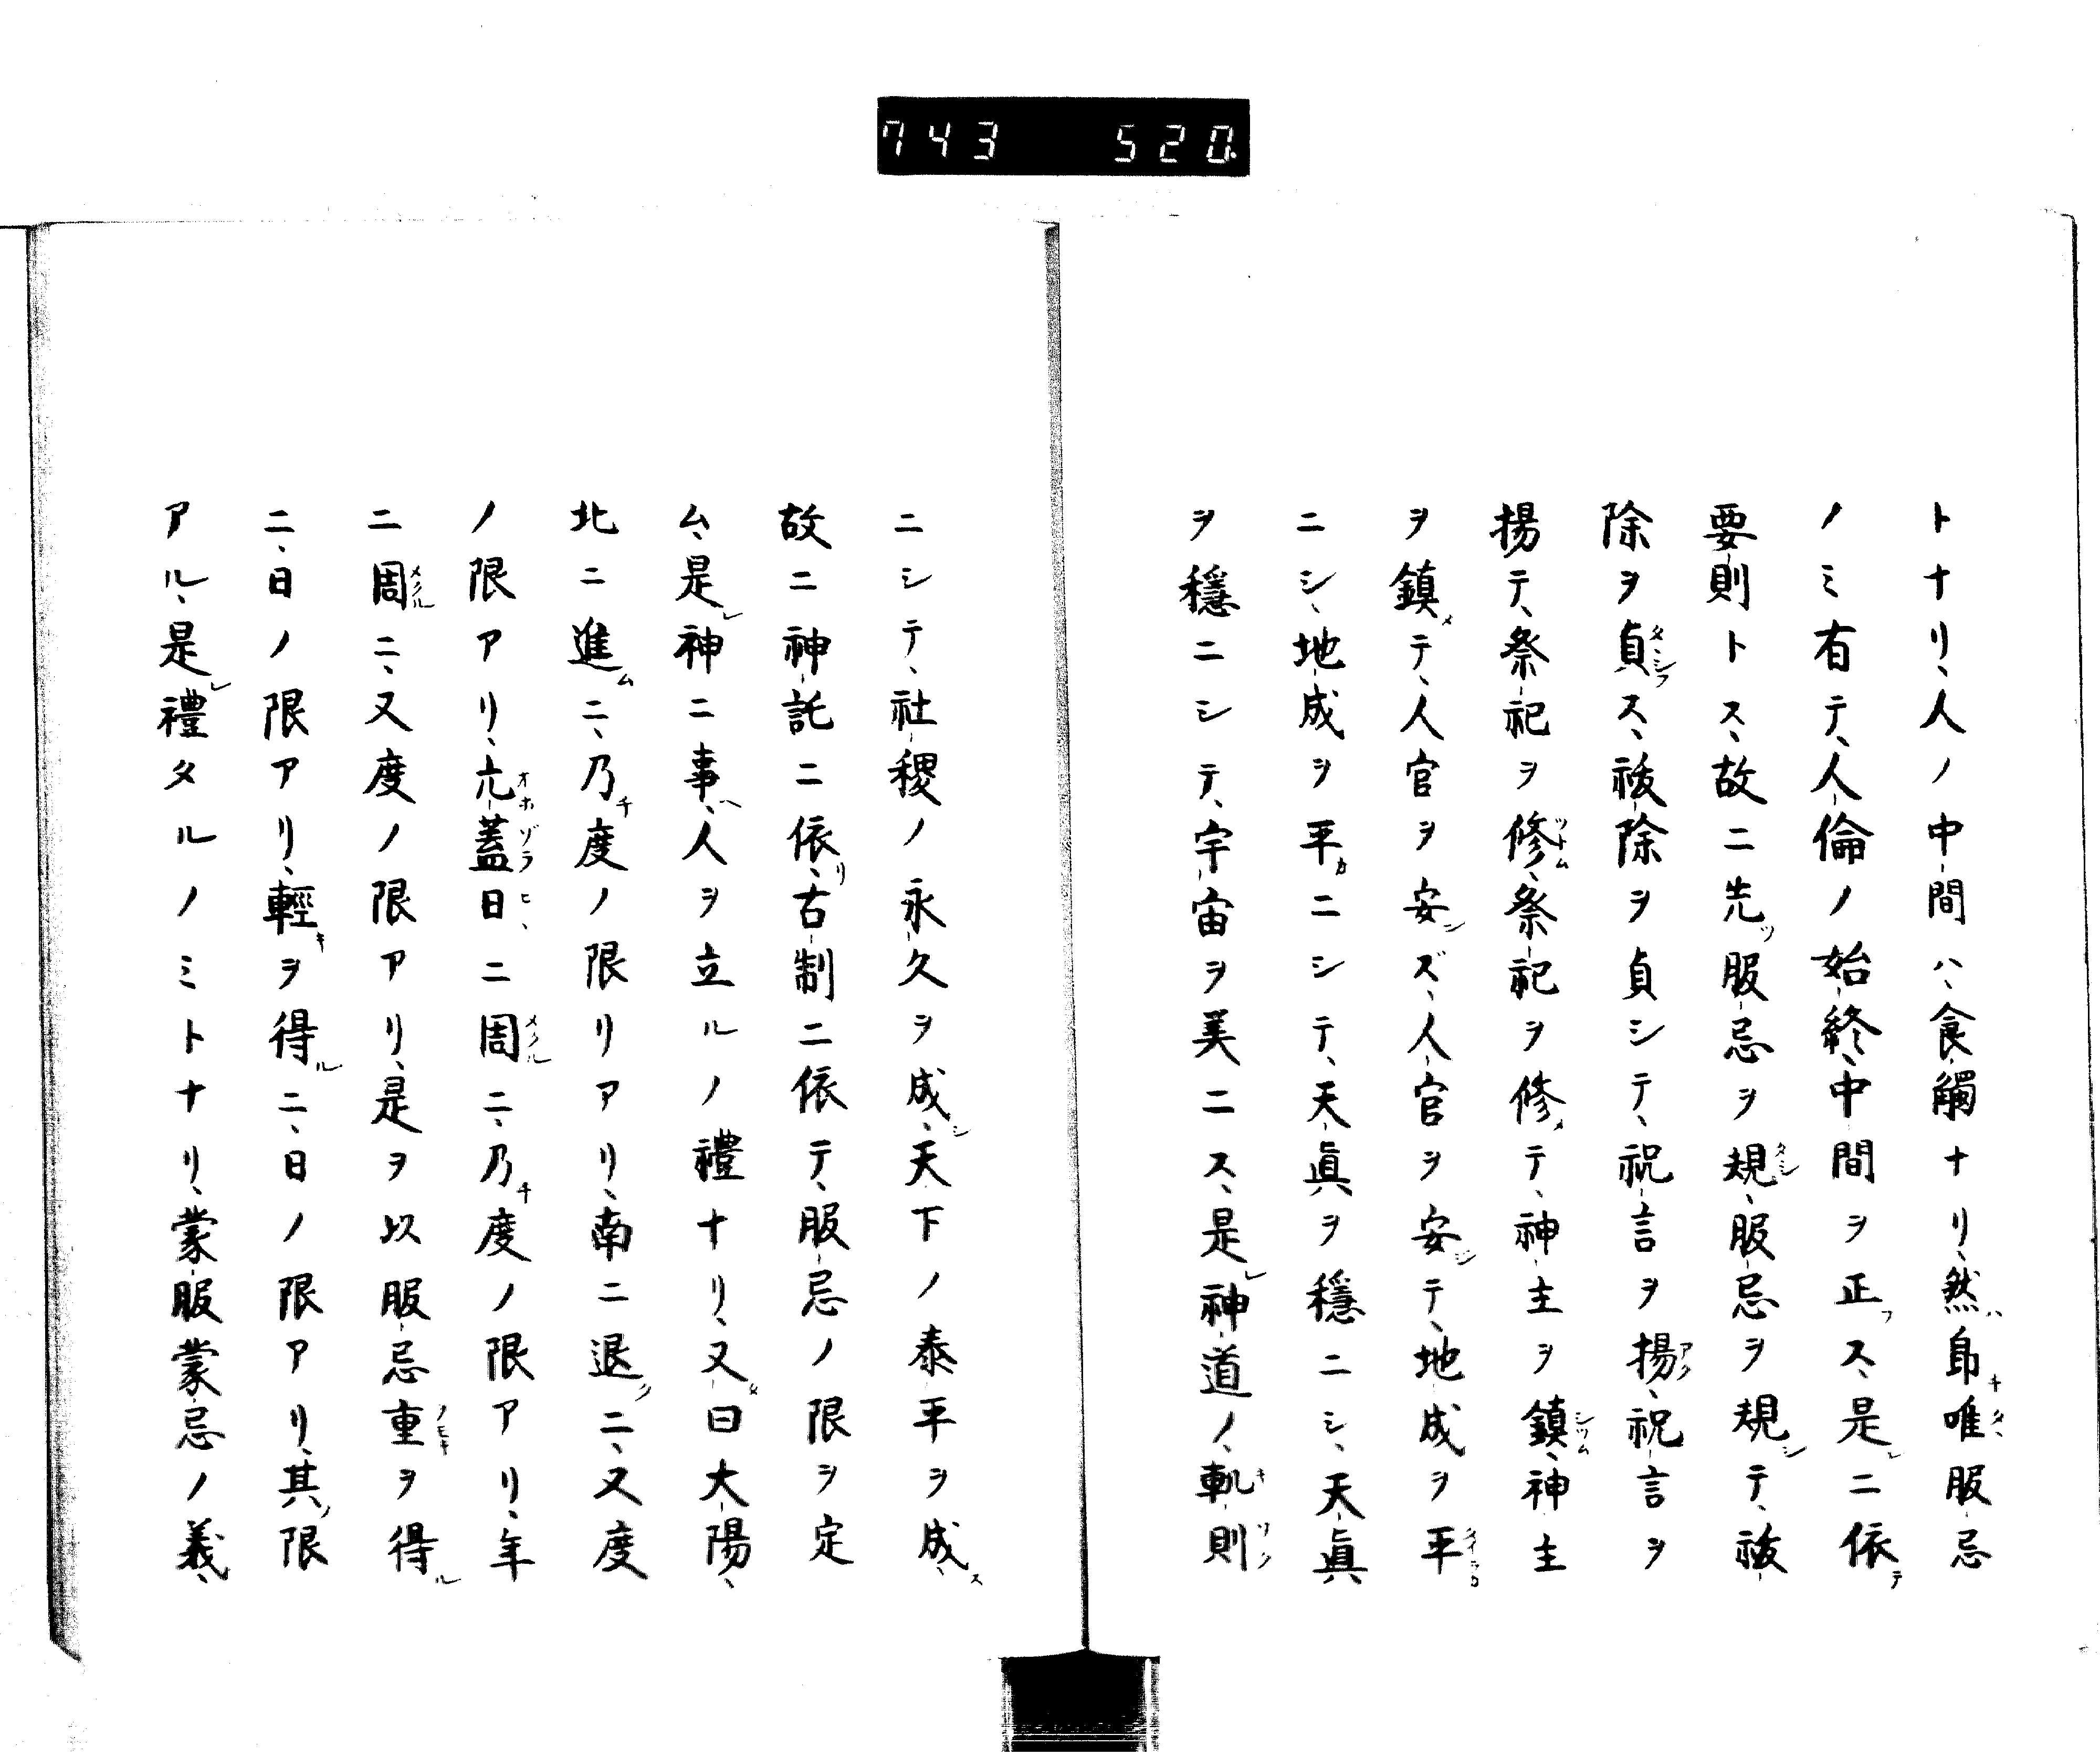 743 520
トナリ、人ノ中間ハ、食觸ナリ、然ハ即キ唯タ、服忌
ノミ有テ、人倫ノ始終、中間ヲ正フス、是レニ依テ
要則トス、故ニ先ツ服忌ヲ規タシ、服忌ヲ規シテ、祓
除ヲ貞タヾシフス、祓除ヲ貞シテ、祝言ヲ揚アク、祝言ヲ
揚テ、祭祀ヲ修ツトム、祭祀ヲ修メテ、神主ヲ鎮シツム、神主
ヲ鎮メテ、人官ヲ安ンズ、人官ヲ安ジテ、地成ヲ平タイラカ
ニシ、地成ヲ平カニシテ、天眞ヲ穩ニシ、天眞
ヲ穩ニシテ、宇宙ヲ美ニス、是レ神道ノ、軌キ則ソク
ニシテ、社稷ノ永久ヲ成シ、天下ノ泰平ヲ成ス、
故ニ神託ニ依リ、古制ニ依テ、服忌ノ限ヲ定
ム、是レ神ニ事ヘ、人ヲ立ルノ禮ナリ、又タ曰大陽、
北ニ進ムニ、乃チ度ノ限リアリ、南ニ退クニ、又度
ノ限アリ、亢蓋オホゾラ日ヒ、ニ周メクルニ、乃チ度ノ限アリ、年
ニ周メクルニ、又度ノ限アリ、是ヲ以服忌重ノモキヲ得ル
ニ、日ノ限アリ、輕キヲ得ルニ、日ノ限アリ、其ノ限
アル、是レ禮タルノミトナリ、蒙服蒙忌ノ義、